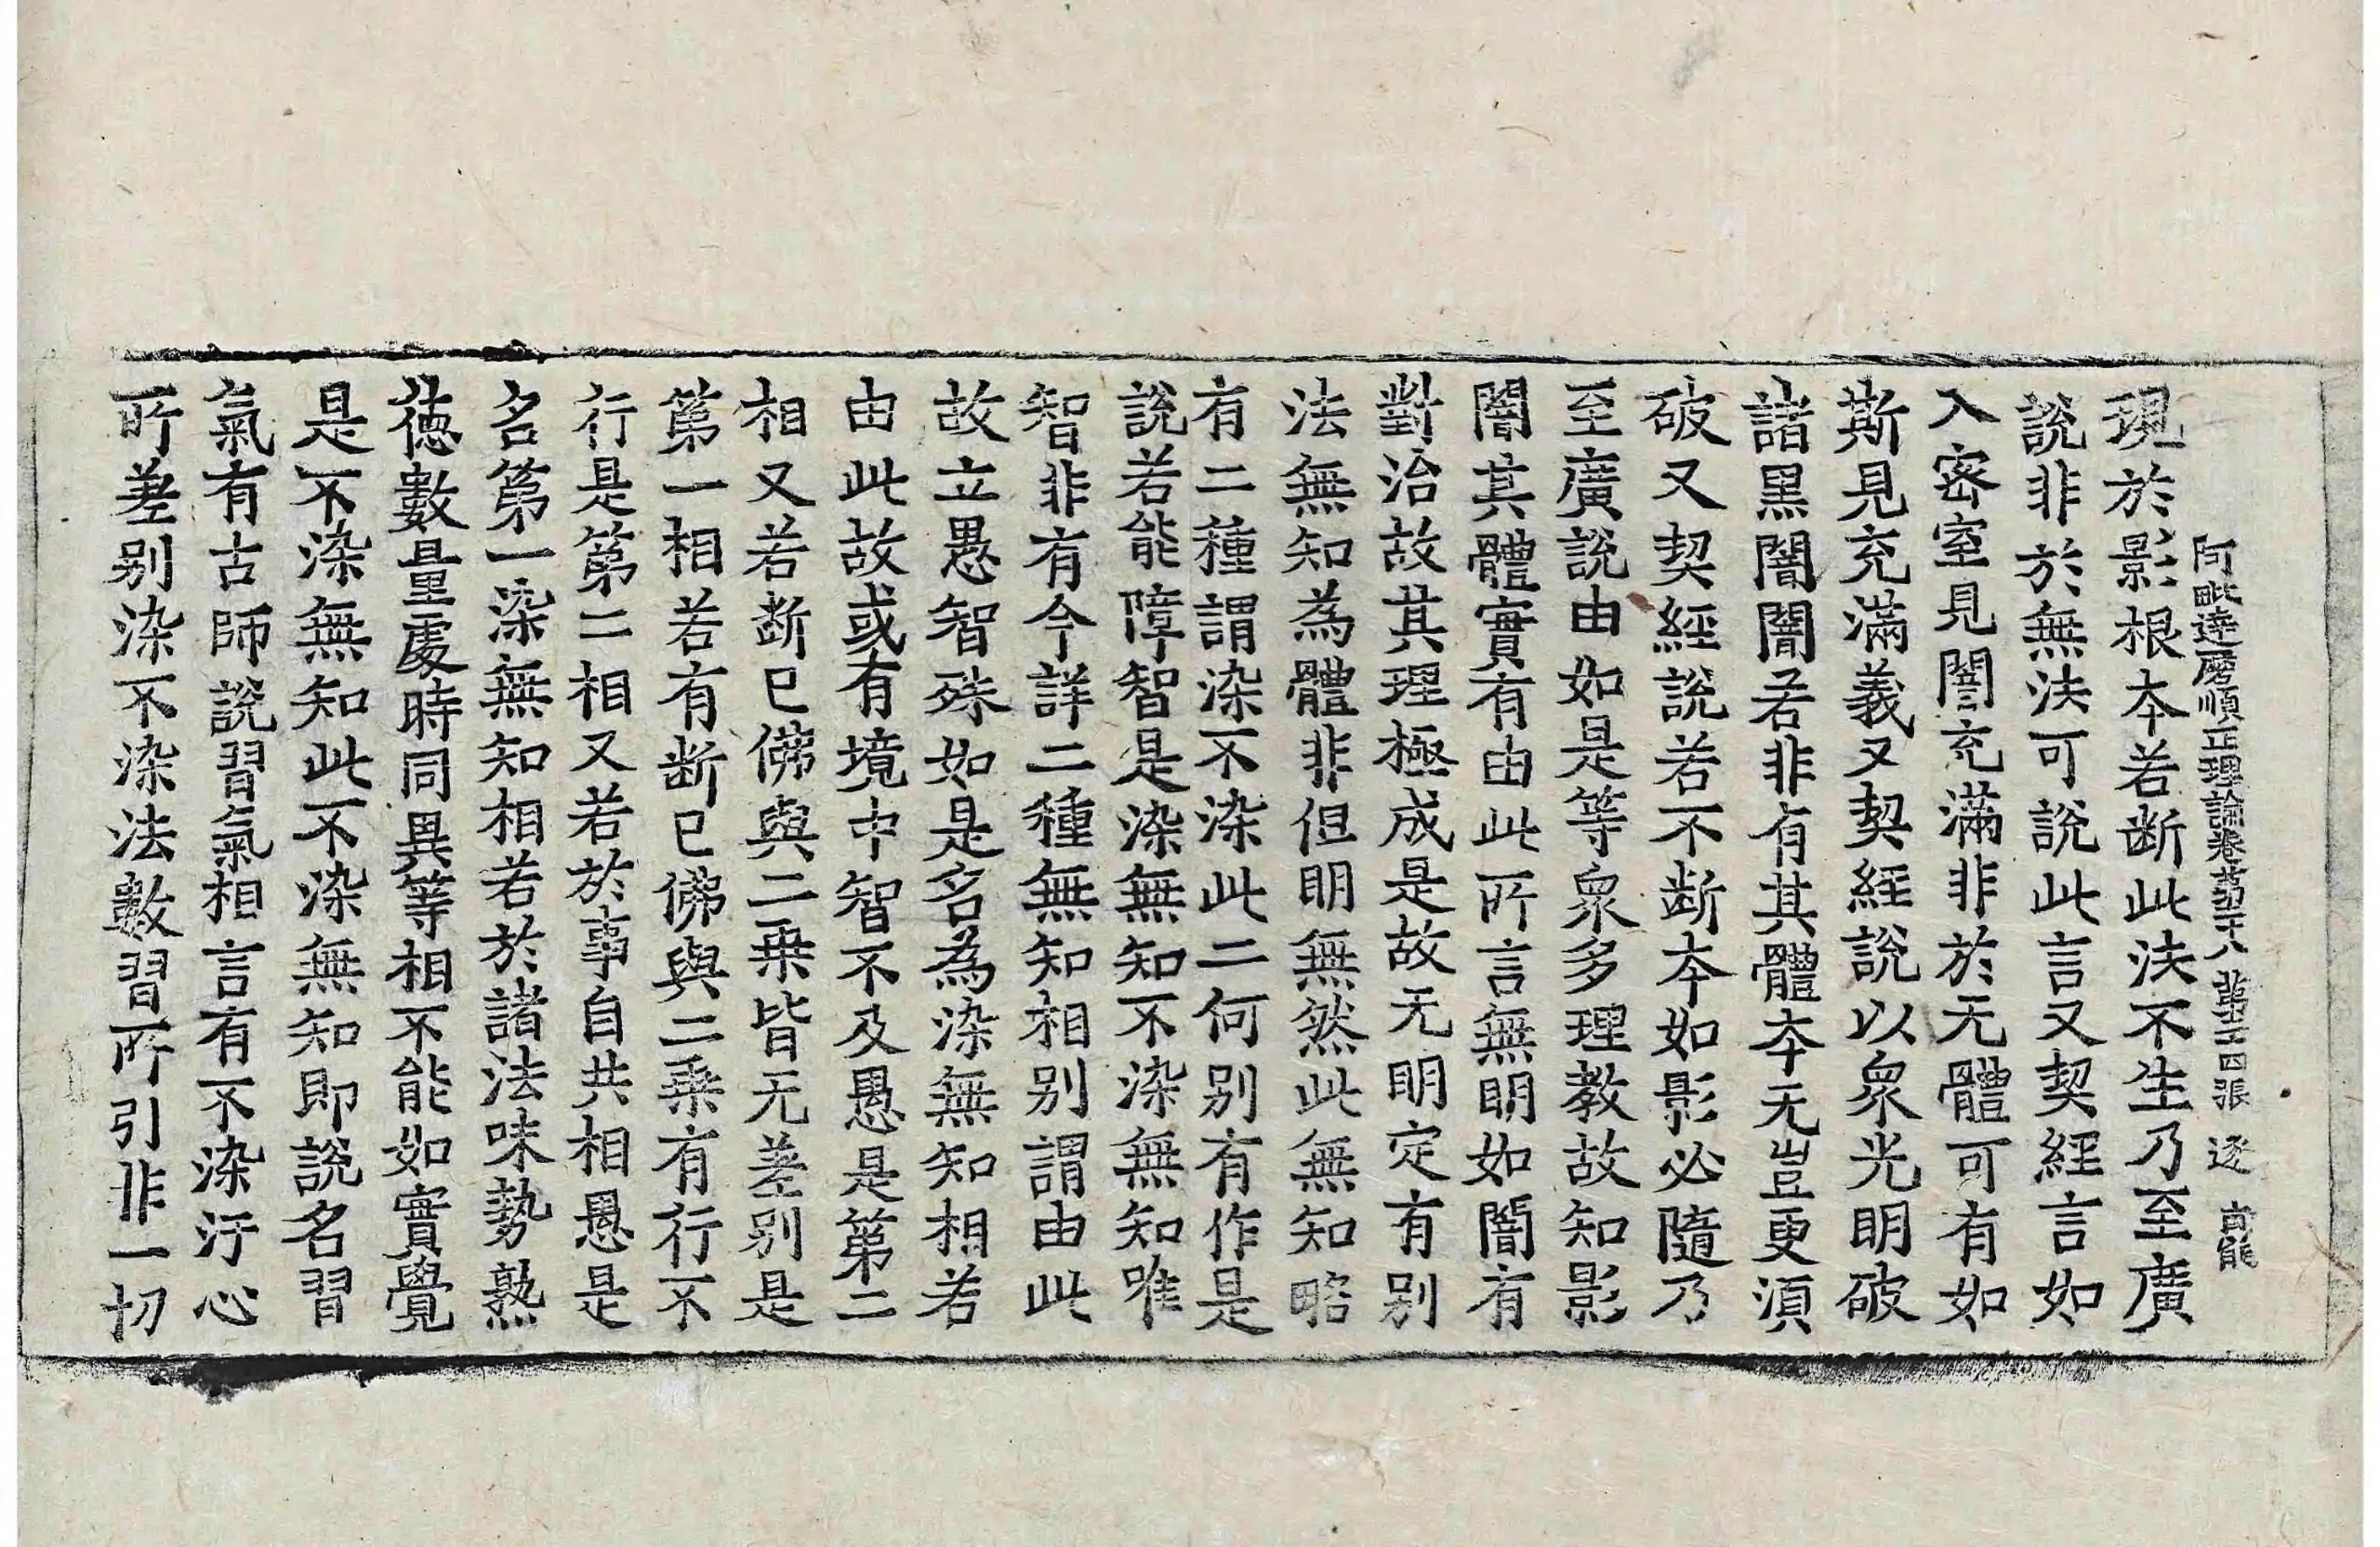 阿毗達磨順正理論卷第二十八 第二四張 逐 高能
現於影根本若断此法不生乃至廣
說非於無法可說此言又契經言如
入密室見闇充滿非於无體可有如
斯見充滿義又契經說以衆光明破
諸黑闇闇若非有其體本无豈更湏
破又契經說若不断本如影必隨乃
至廣說由如是等衆多理教故知影
闇其體實有由此所言無明如闇有
對治故其理極成是故无明定有别
法無知為體非但明無然此無知略
有二種謂染不染此二何别有作是
說若能障智是染無知不染無知唯
智非有今詳二種無知相别謂由此
故立愚智殊如是名為染無知相若
由此故或有境中智不及愚是第二
相又若断已佛與二乗皆无差别是
第一相若有断已佛與二乗有行不
行是第二相又若於事自共相愚是
名第一染無知相若於諸法味勢熟
德數量處時同異等相不能如實覺
是不染無知此不染無知即說名習
氣有古師說習氣相言有不染汙心
所差别染不染法數習所引非一切